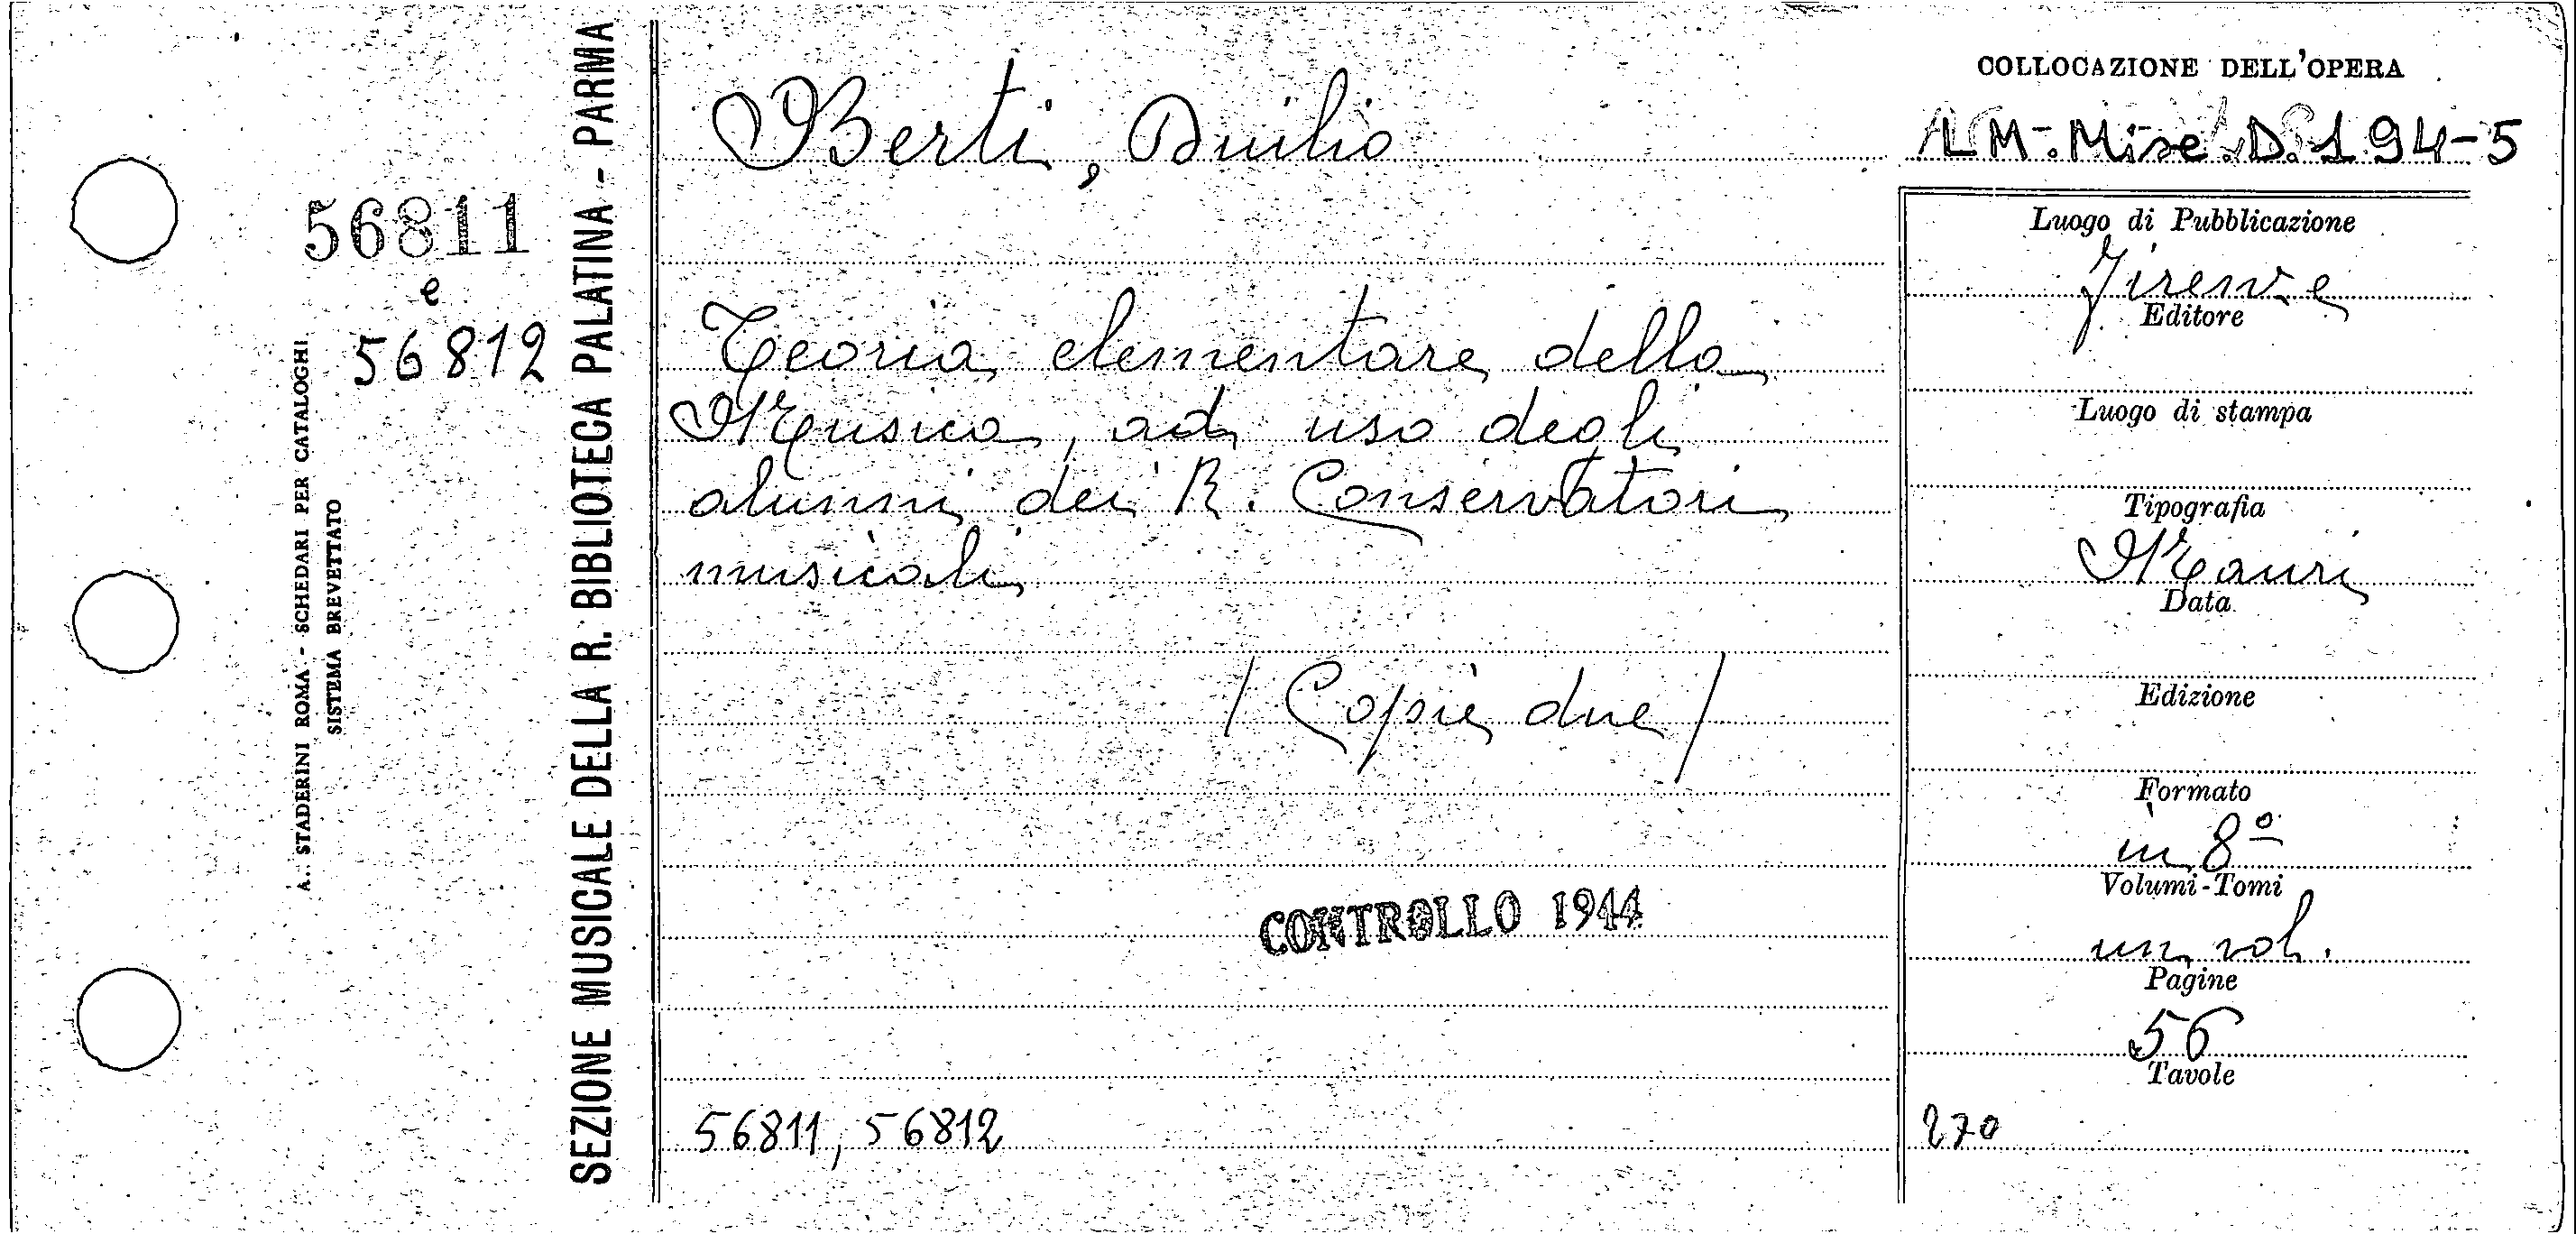 COLLOCAZIONE DELL'OPERA
LM-Misc.D.194-5
Berti, Duilio
56811
e
56812
A. STADERINI ROMA - SCHEDARI PER CATALOGHI
SISTEMA BREVETTATO
SEZIONE MUSICALE DELLA R. BIBLIOTECA PALATINA - PARMA
Teoria elementare della
Musica, ad uso degli
alunni dei R. Conservatori
musicali
/ Copie due /
CONTROLLO 1944
56811, 56812
Luogo di Pubblicazione
Firenze
Editore
Luogo di stampa
Tipografia
Mauri
Data
Edizione
Formato
in 8º
Volumi-Tomi
un vol.
Pagine
56
Tavole
270